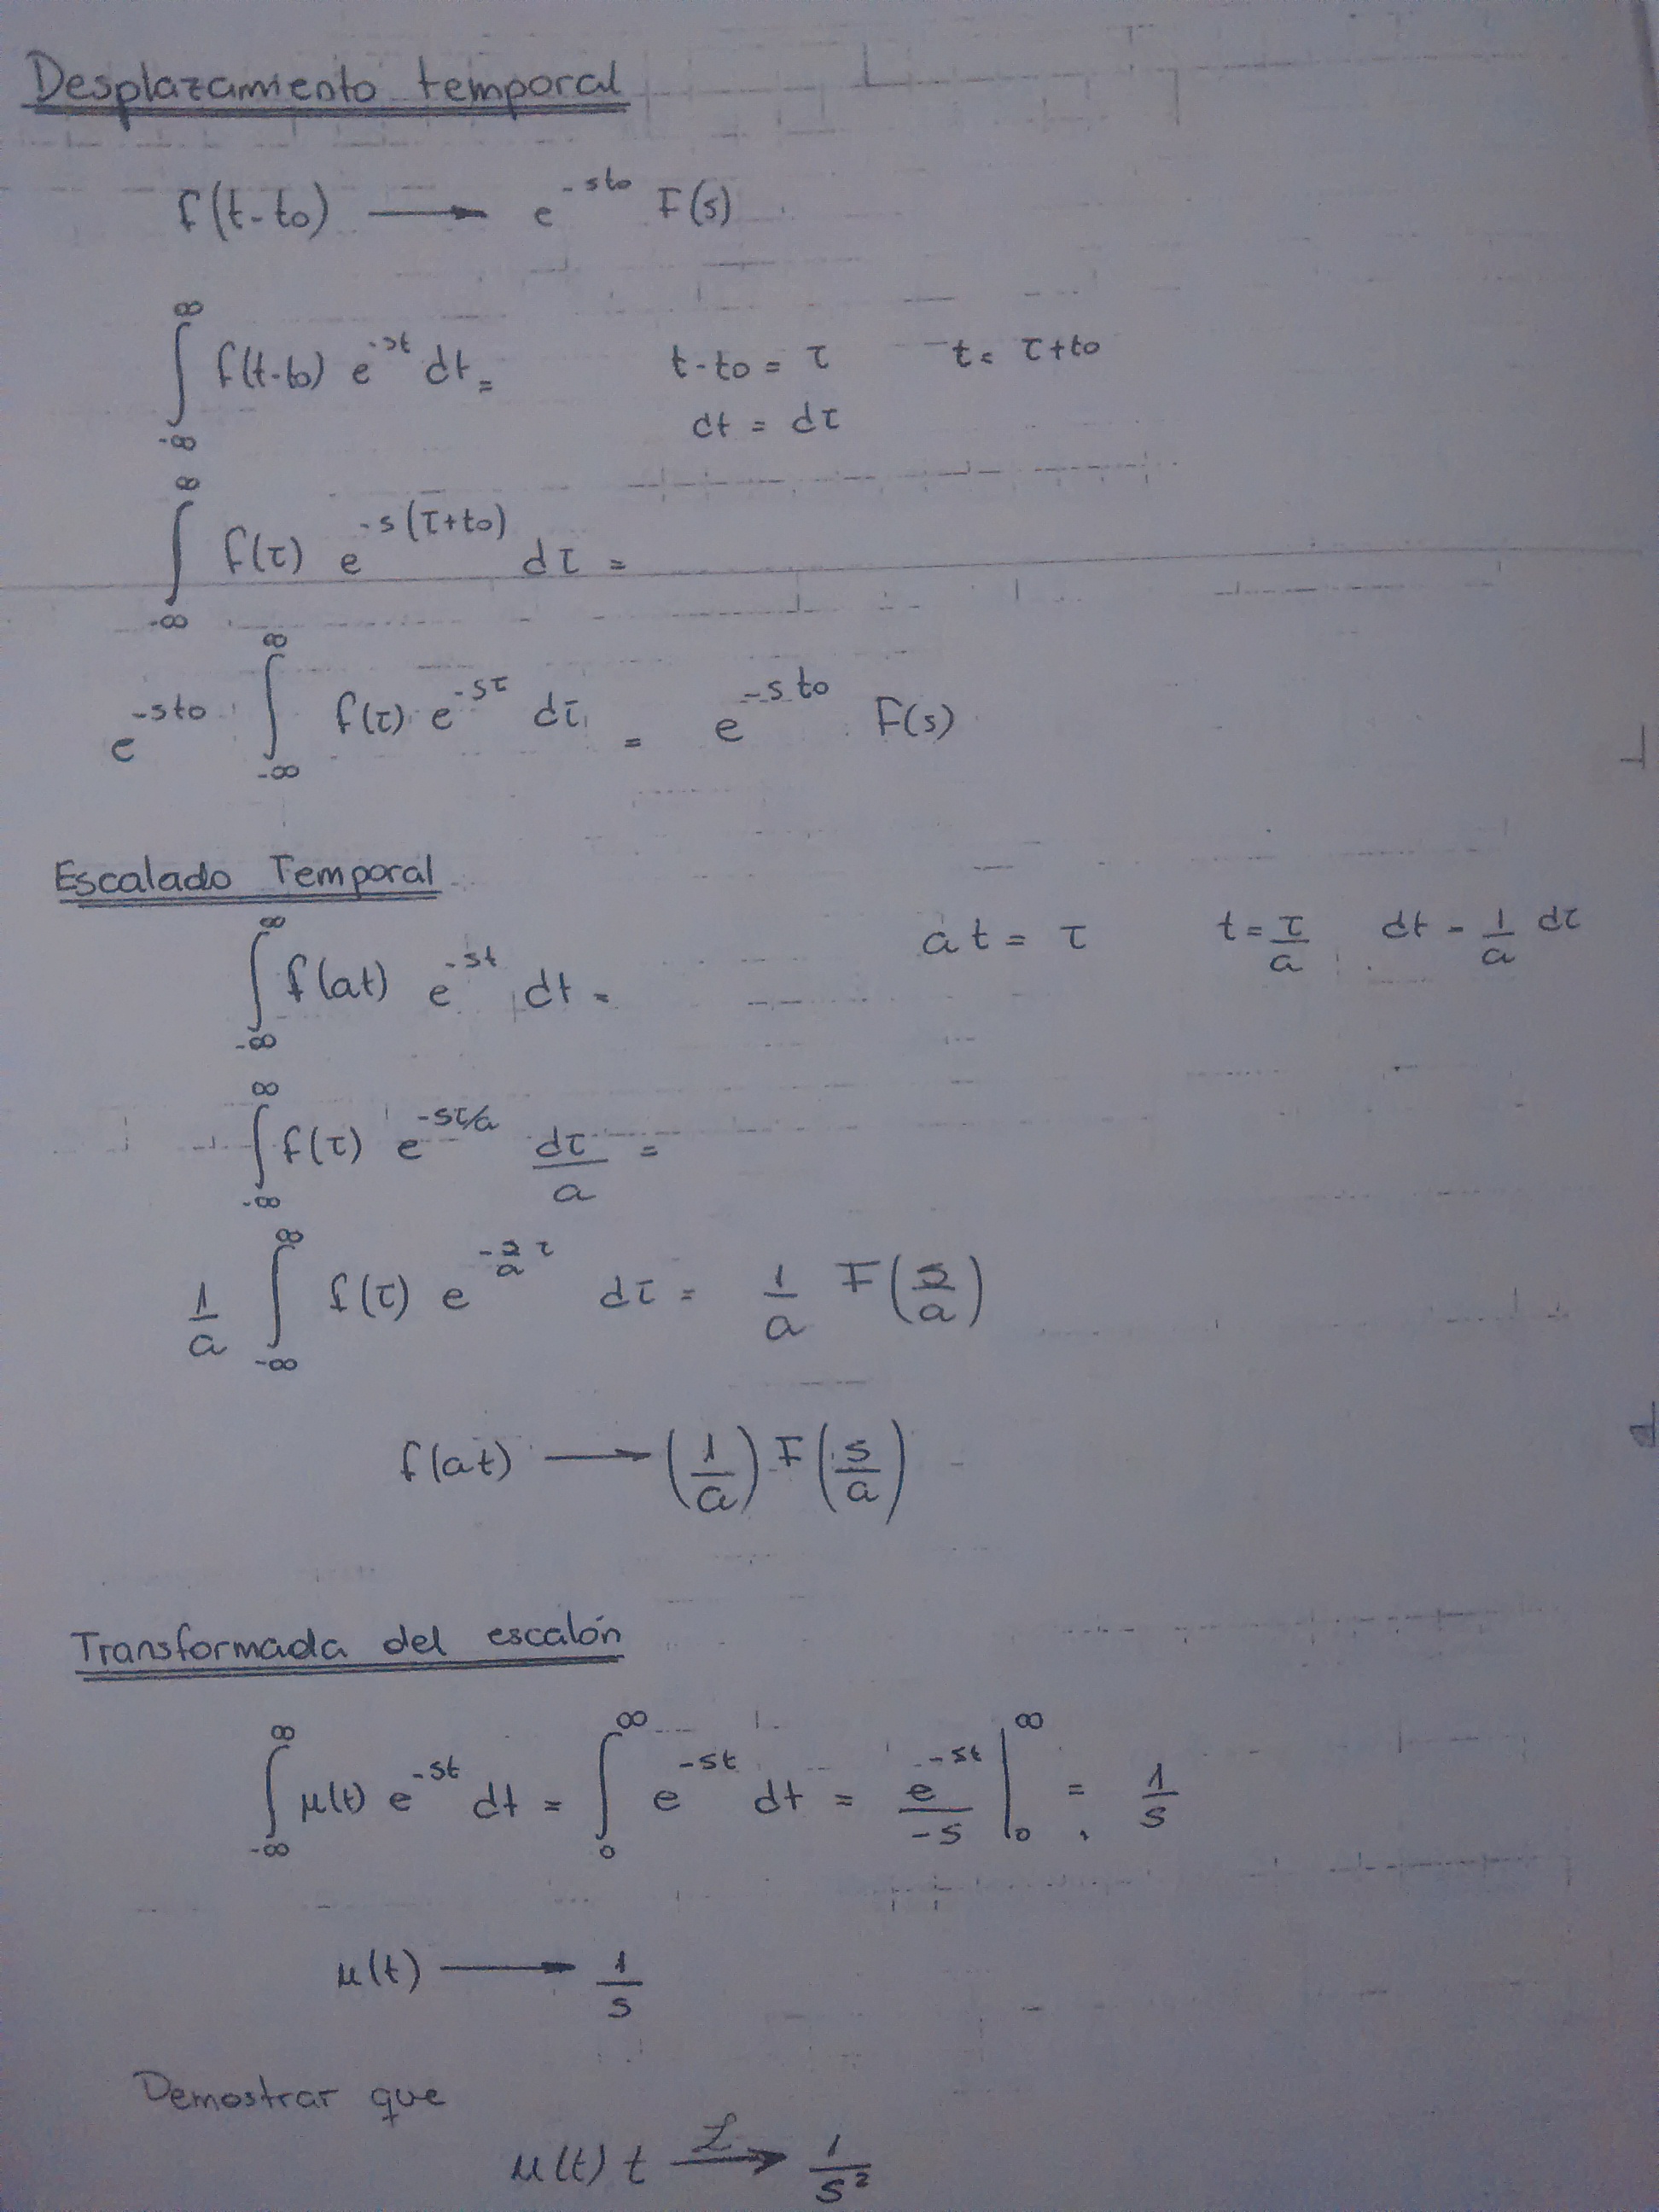 Desplazamiento temporal
f(t-to) → e^{-sto} F(s)
∫_{-∞}^{∞} f(t-to) e^{-st} dt = t-to = τ t = τ+to
dt = dτ
∫_{-∞}^{∞} f(τ) e^{-s(τ+to)} dτ =
e^{-sto} ∫_{-∞}^{∞} f(τ) e^{-sτ} dτ = e^{-sto} F(s)
Escalado Temporal
∫_{-∞}^{∞} f(at) e^{-st} dt = at = τ t = τ/a dt = 1/a dτ
∫_{-∞}^{∞} f(τ) e^{-sτ/a} dτ/a =
1/a ∫_{-∞}^{∞} f(τ) e^{-s/a τ} dτ = 1/a F(s/a)
f(at) → (1/a) F(s/a)
Transformada del escalón
∫_{-∞}^{∞} μ(t) e^{-st} dt = ∫_{0}^{∞} e^{-st} dt = e^{-st}/-s |_{0}^{∞} = 1/s
μ(t) → 1/s
Demostrar que
μ(t) t →^{ℒ} 1/s²